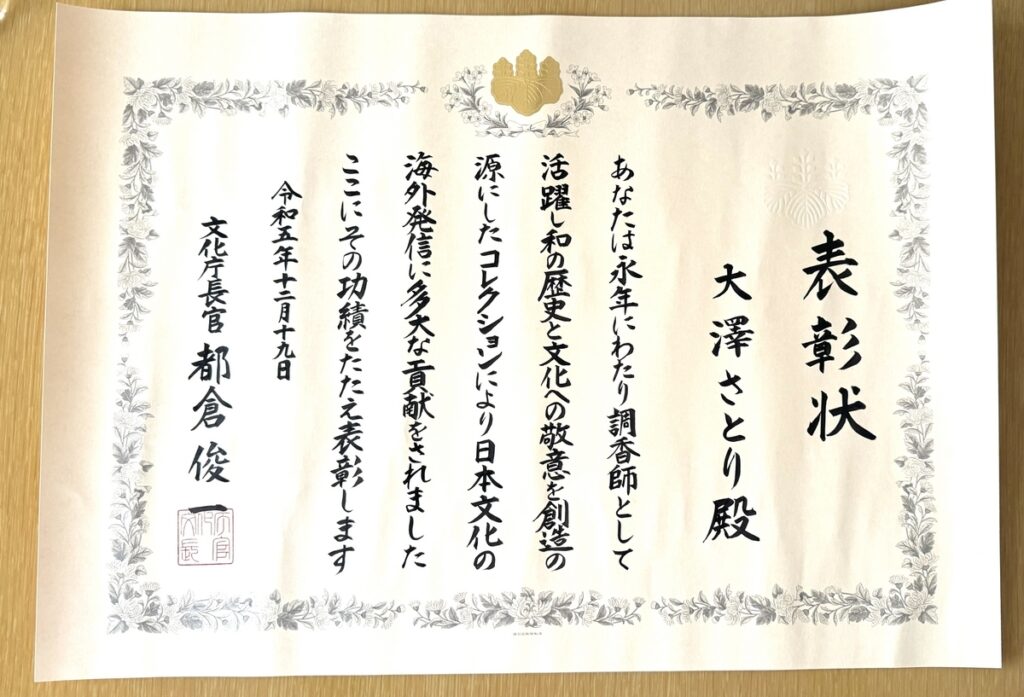 表彰状
大澤さとり殿
あなたは永年にわたり調香師として
活躍し和の歴史と文化への敬意を創造の
源にしたコレクションにより日本文化の
海外発信に多大な貢献をされました
ここにその功績をたたえ表彰します
令和五年十二月十九日
文化庁長官 都倉俊一